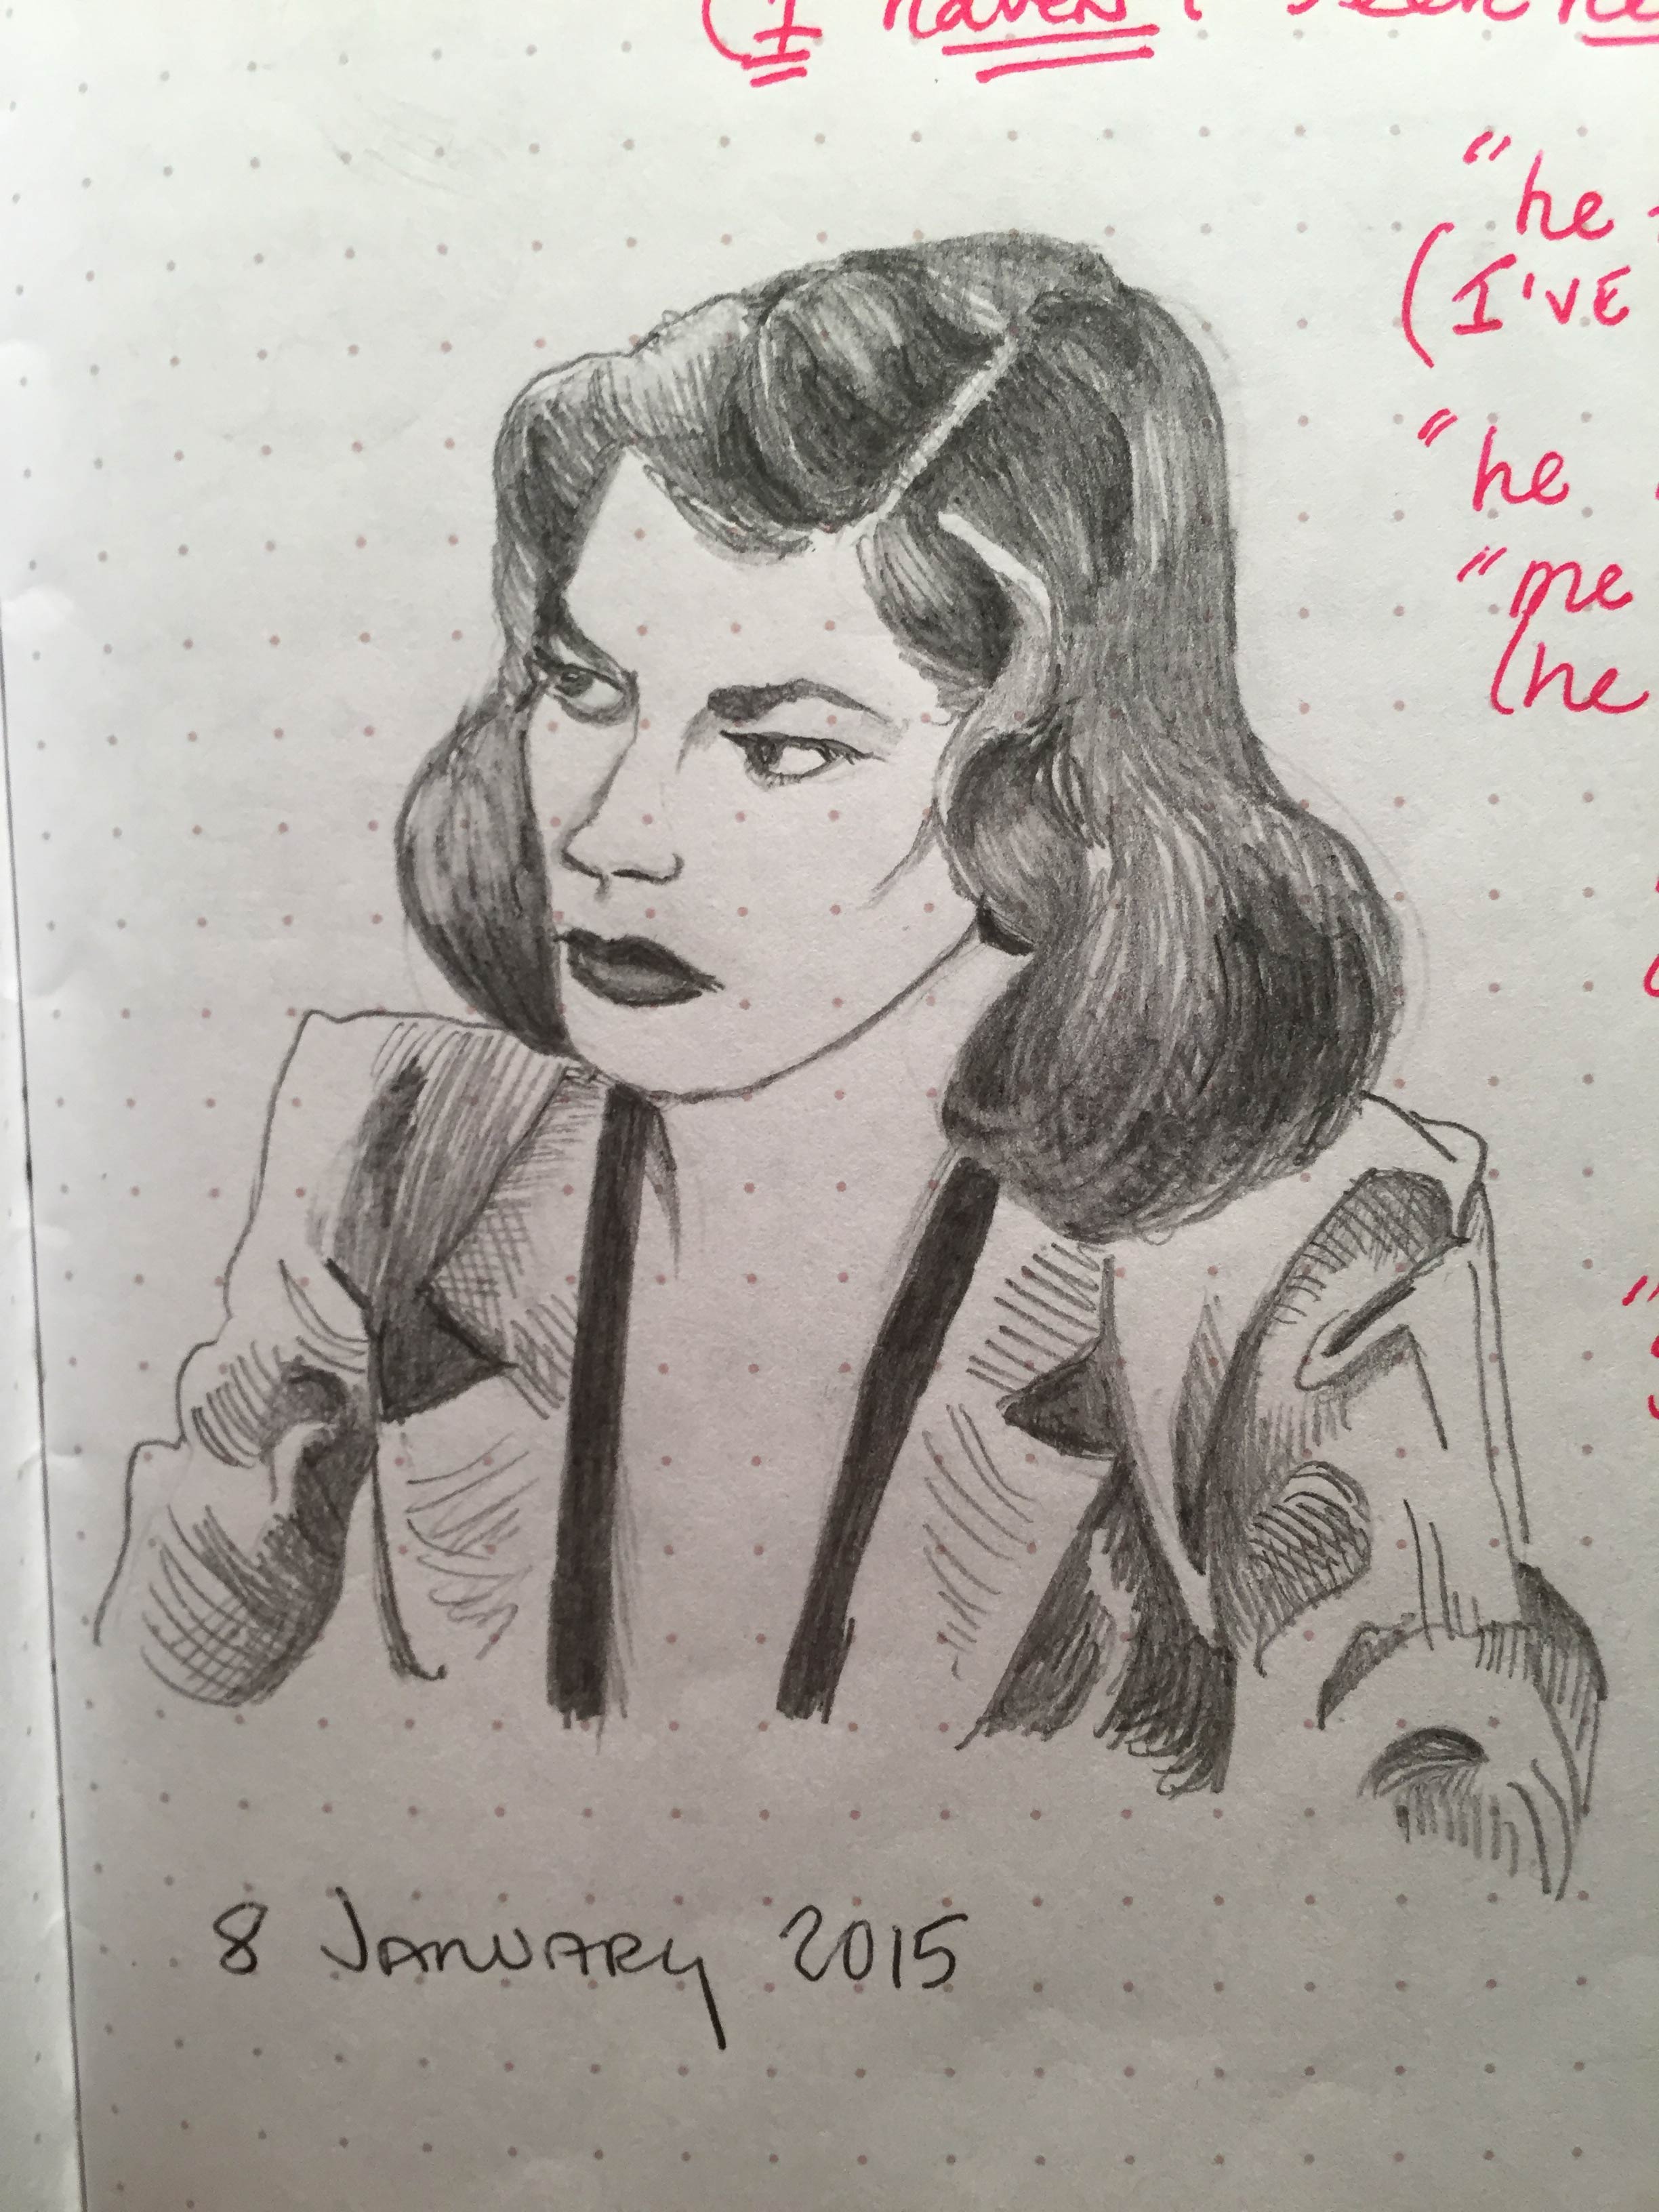 (I haven't seen
"he
(I'VE
"he
"me
(he
8 JANUARY 2015